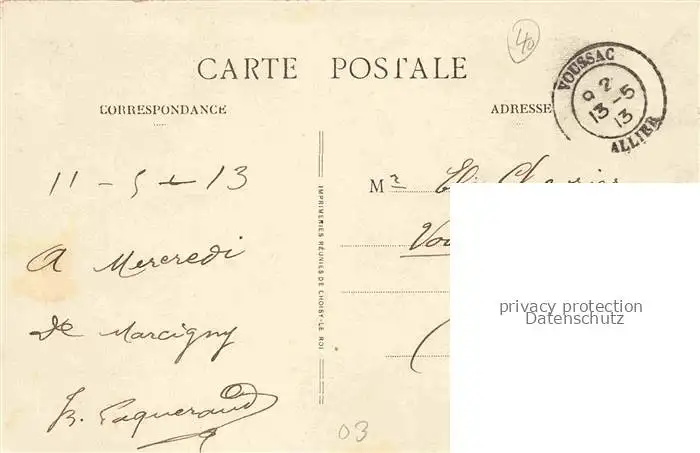 40
CARTE POSTALE
CORRESPONDANCE
ADRESSE
VOUSSAC
9 2
13-5
13
ALLIER
11 - 5 - 13
Mr
A Mercredi
de Marcigny
IMPRIMERIES RÉUNIES DE CHOISY-LE-ROI
privacy protection
Datenschutz
03